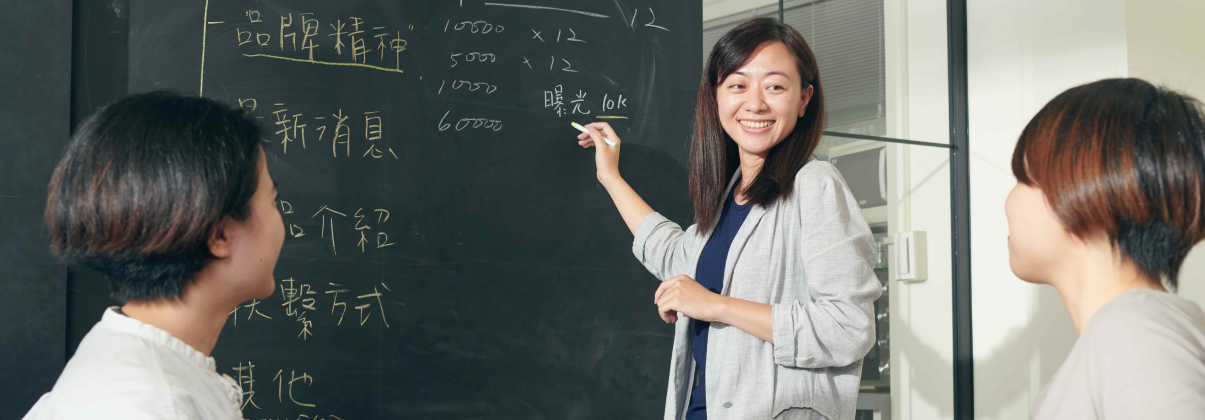 品牌精神"
最新消息
品介紹
聯繫方式
其他
12
10000 × 12
5000 × 12
1000
60000
曝光 10k